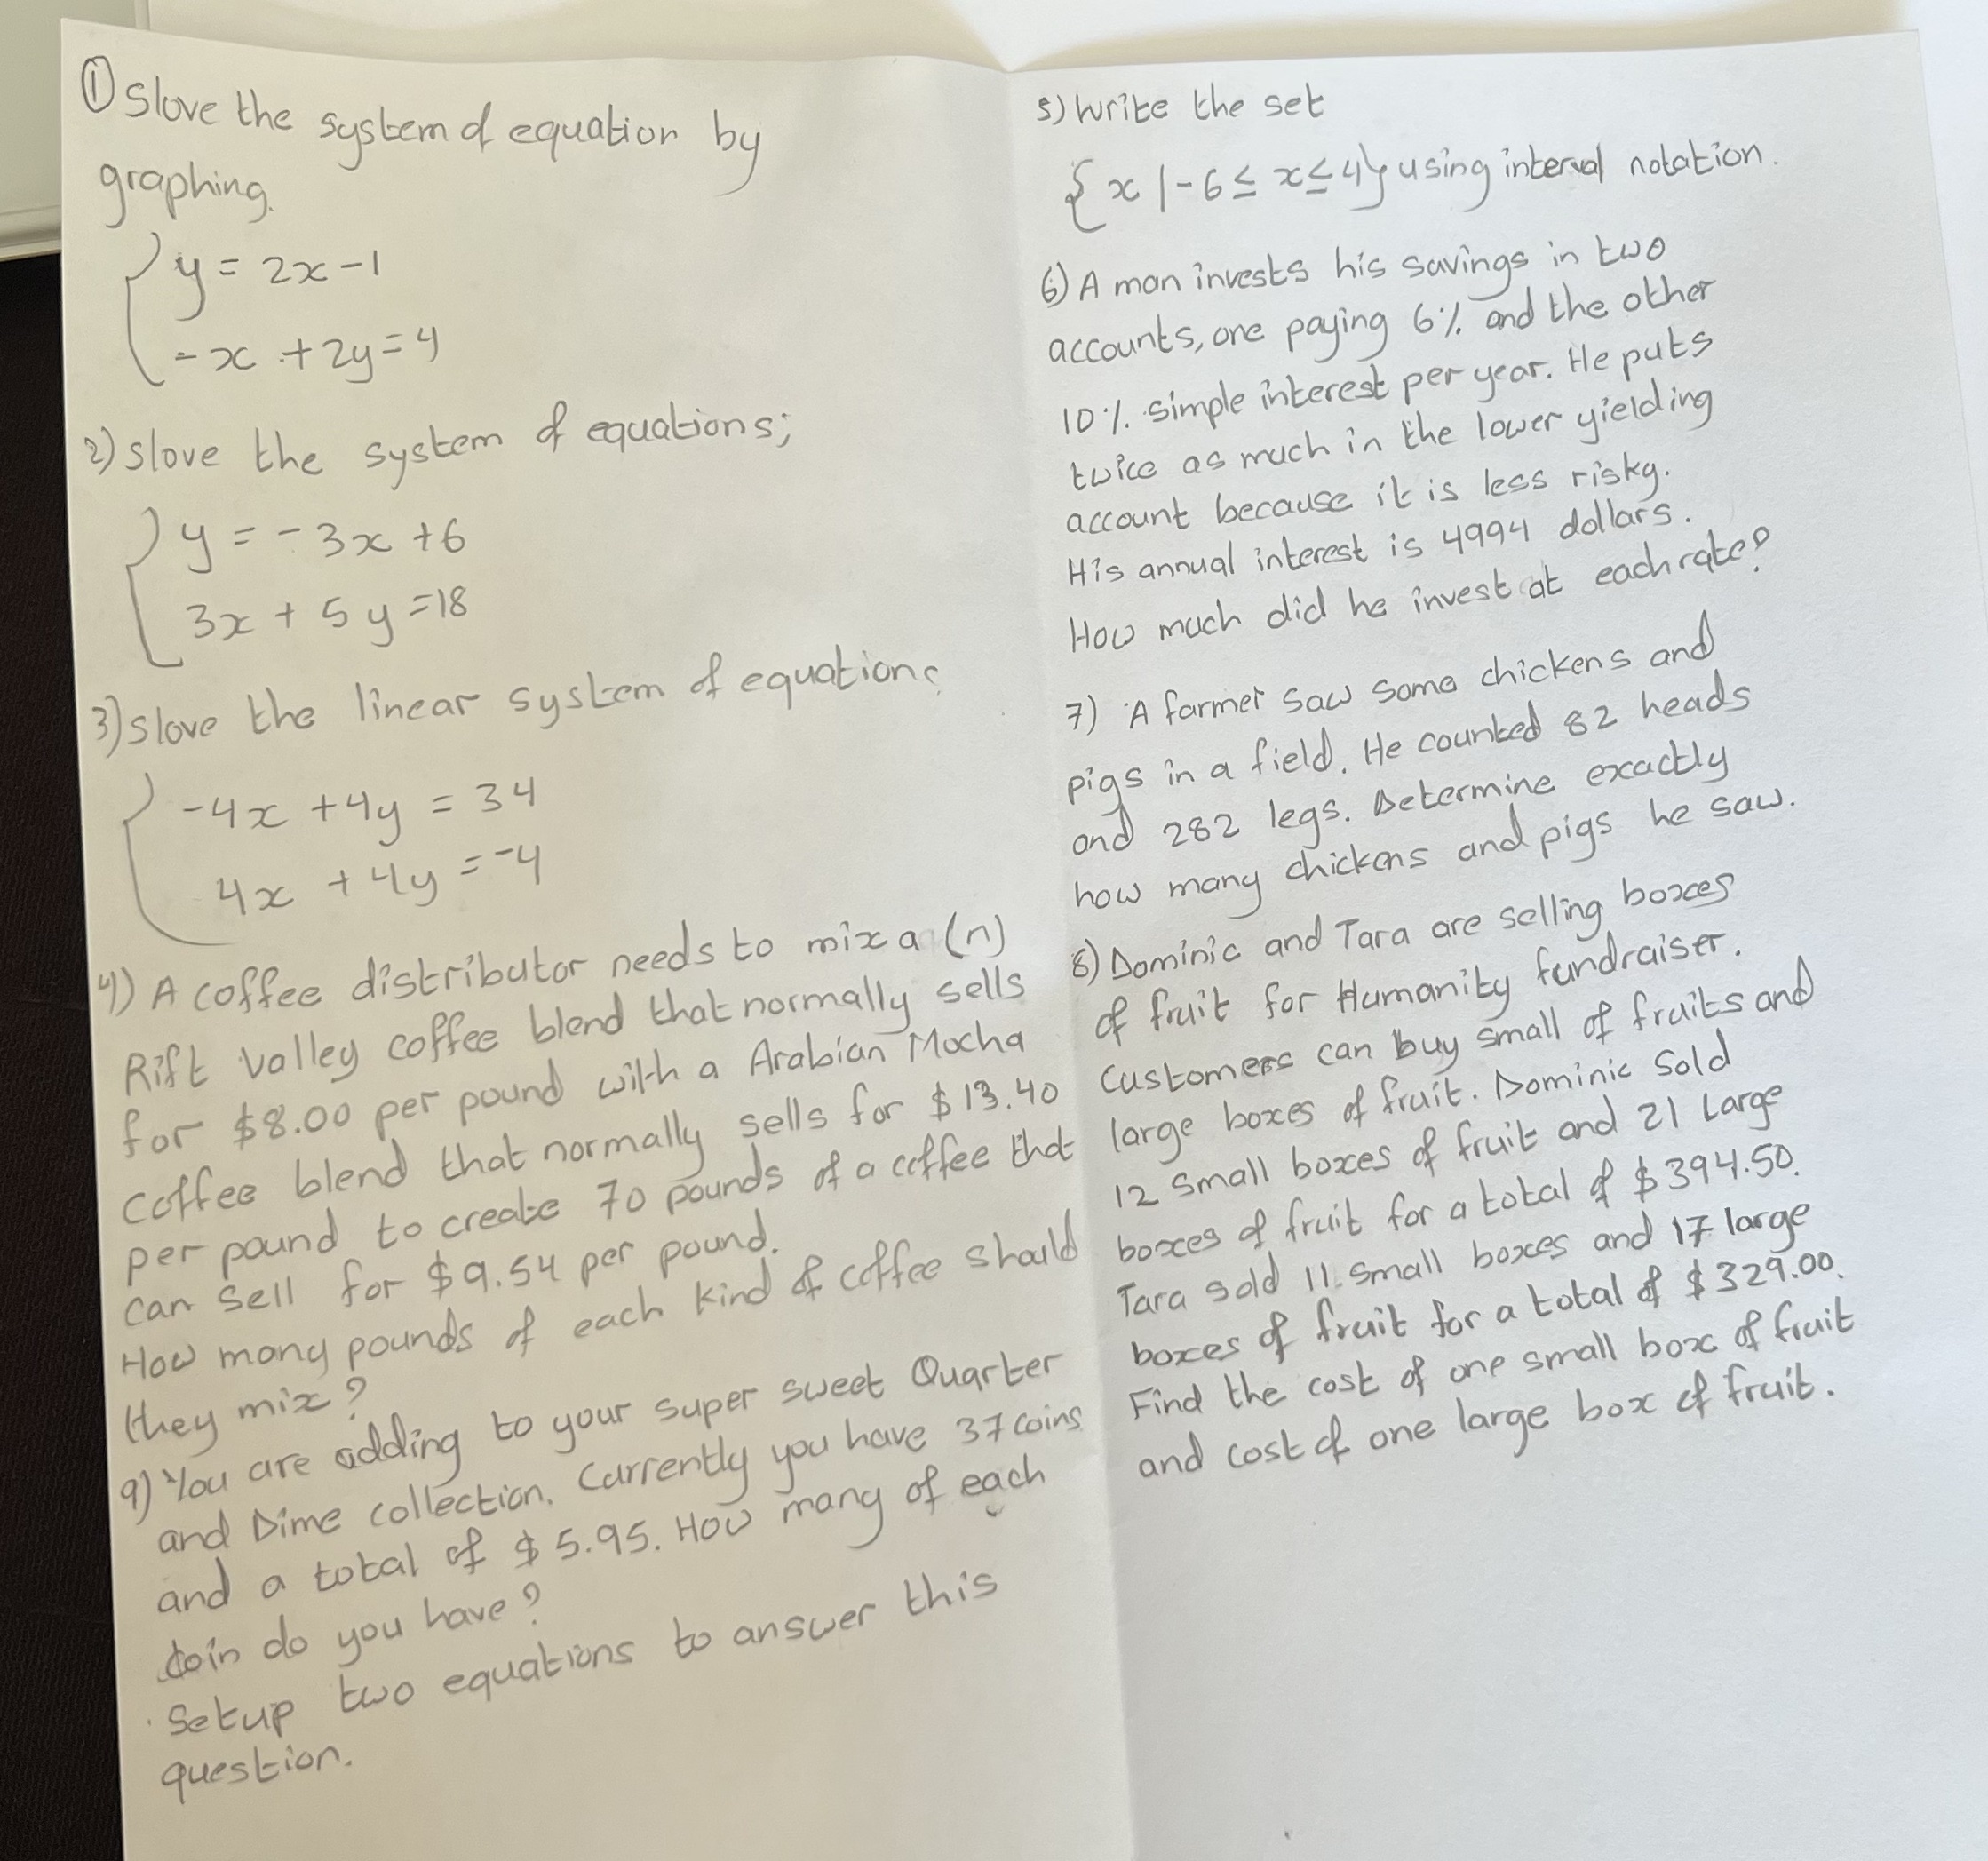 ① Slove the system of equation by
graphing.
y = 2x - 1
- x + 2y = 4
2) slove the system of equations;
y = - 3x + 6
3x + 5y = 18
3) slove the linear system of equations
-4x + 4y = 34
4x + 4y = -4
4) A coffee distributor needs to mix a (n)
Rift Valley coffee blend that normally sells
for $8.00 per pound with a Arabian Mocha
coffee blend that normally sells for $13.40
per pound to create 70 pounds of a coffee that
can sell for $9.54 per pound.
How many pounds of each kind of coffee should
they mix?
9) You are adding to your super sweet Quarter
and Dime collection. Currently you have 37 coins
and a total of $5.95. How many of each
coin do you have?
Setup two equations to answer this
question.
5) Write the set
{x | -6 ≤ x ≤ 4} using interval notation.
6) A man invests his savings in two
accounts, one paying 6% and the other
10% simple interest per year. He puts
twice as much in the lower yielding
account because it is less risky.
His annual interest is 4994 dollars.
How much did he invest at each rate?
7) A farmer saw some chickens and
pigs in a field. He counted 82 heads
and 282 legs. Determine exactly
how many chickens and pigs he saw.
8) Dominic and Tara are selling boxes
of fruit for Humanity fundraiser.
Customers can buy small of fruits and
large boxes of fruit. Dominic Sold
12 small boxes of fruit and 21 Large
boxes of fruit for a total of $394.50.
Tara sold 11 small boxes and 17 large
boxes of fruit for a total of $329.00.
Find the cost of one small box of fruit
and cost of one large box of fruit.